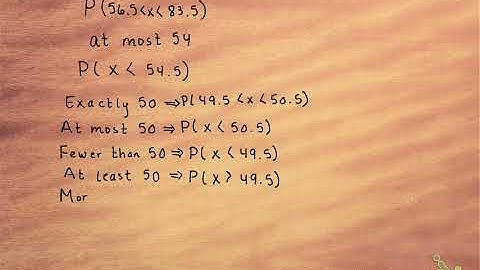 P(56.5<x<83.5)
at most 54
P(x < 54.5)
Exactly 50 ⇒ P(49.5 < x < 50.5)
At most 50 ⇒ P(x < 50.5)
Fewer than 50 ⇒ P(x < 49.5)
At least 50 ⇒ P(x > 49.5)
Mor